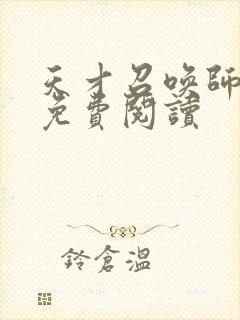 天才召喚師
免費閱讀
鈴倉溫